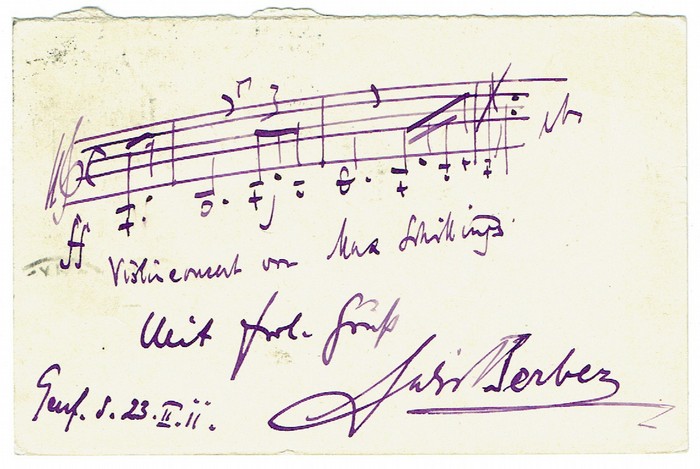 ff
Violinconcert von Max Schillings.
Mit frdl. Gruß
Felix Berber
Genf. d. 23. II. 11.